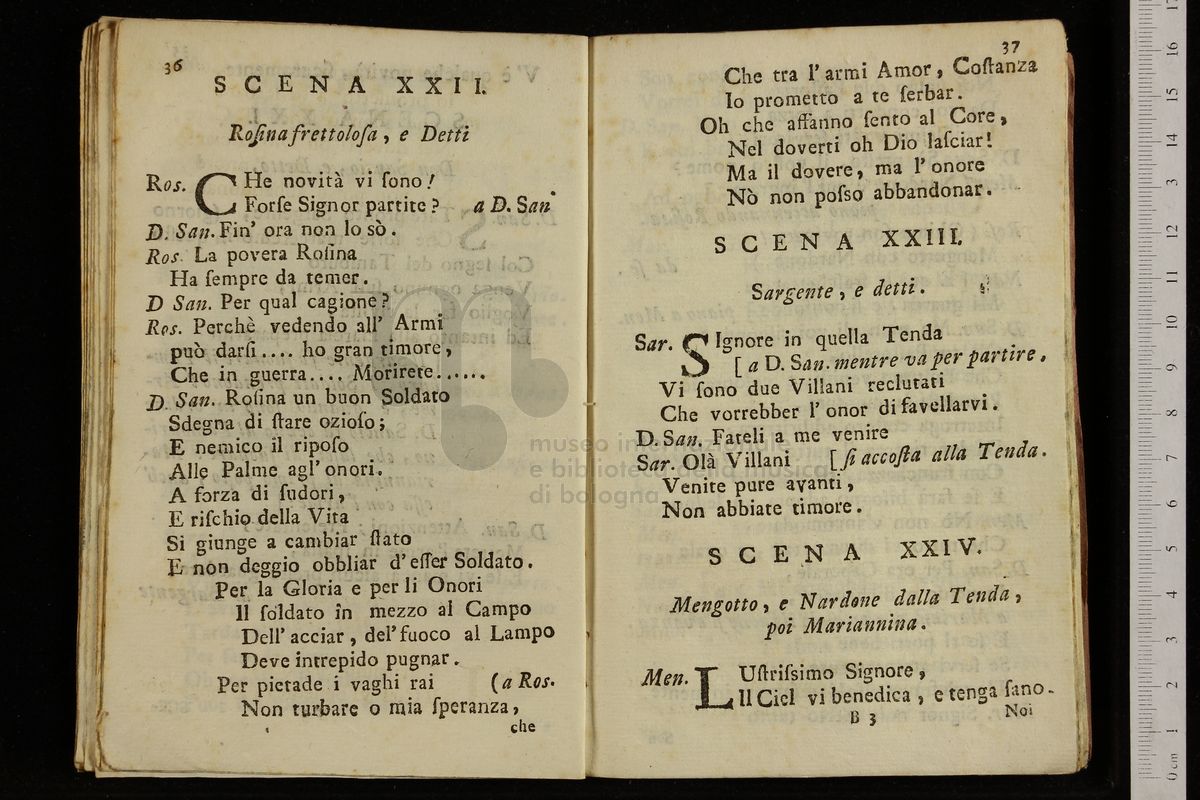 36
SCENA XXII.
Rosina frettolosa, e Detti
Ros. CHe novità vi sono!
Forse Signor partite? a D. San
D. San. Fin' ora non lo sò.
Ros. La povera Rosina
Ha sempre da temer.
D San. Per qual cagione?
Ros. Perchè vedendo all' Armi
può darsi.... ho gran timore,
Che in guerra.... Morirete......
D. San. Rosina un buon Soldato
Sdegna di stare ozioso;
E nemico il riposo
Alle Palme agl' onori.
A forza di sudori,
E rischio della Vita
Si giunge a cambiar stato
E non deggio obbliar d' esser Soldato.
Per la Gloria e per li Onori
Il soldato in mezzo al Campo
Dell' acciar, del' fuoco al Lampo
Deve intrepido pugnar.
Per pietade i vaghi rai (a Ros.
Non turbare o mia speranza,
che
37
Che tra l' armi Amor, Costanza
Io prometto a te serbar.
Oh che affanno sento al Core,
Nel doverti oh Dio lasciar!
Ma il dovere, ma l' onore
Nò non posso abbandonar.
SCENA XXIII.
Sargente, e detti.
Sar. SIgnore in quella Tenda
[a D. San. mentre va per partire.
Vi sono due Villani reclutati
Che vorrebber l' onor di favellarvi.
D. San. Fateli a me venire
Sar. Olà Villani [si accosta alla Tenda.
Venite pure avanti,
Non abbiate timore.
SCENA XXIV.
Mengotto, e Nardone dalla Tenda,
poi Mariannina.
Men. LUstrissimo Signore,
Il Ciel vi benedica, e tenga sano.
B 3 Noi
museo internazionale
e biblioteca della musica
di bologna
0 cm 1 2 3 4 5 6 7 8 9 10 11 12 13 14 15 16 17